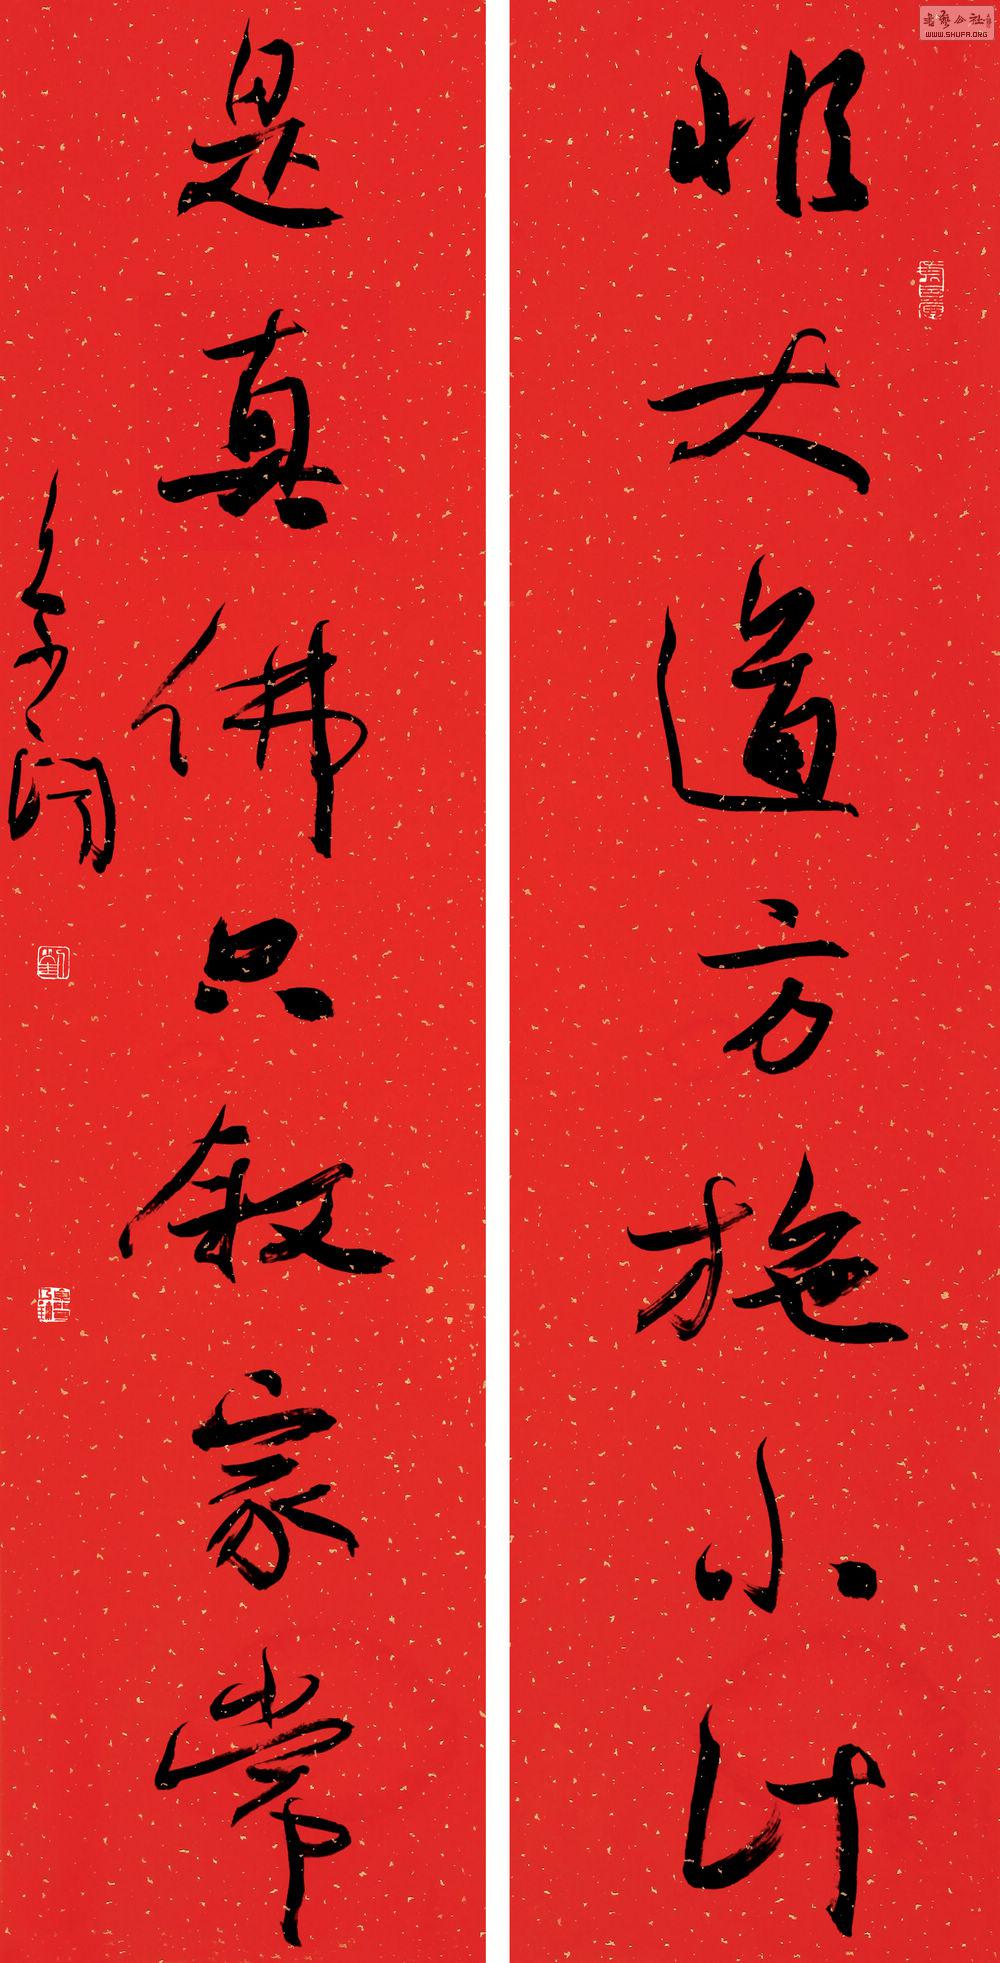 书藝公社
WWW.SHUFA.ORG
非大道方施小计
是真佛只叙家常